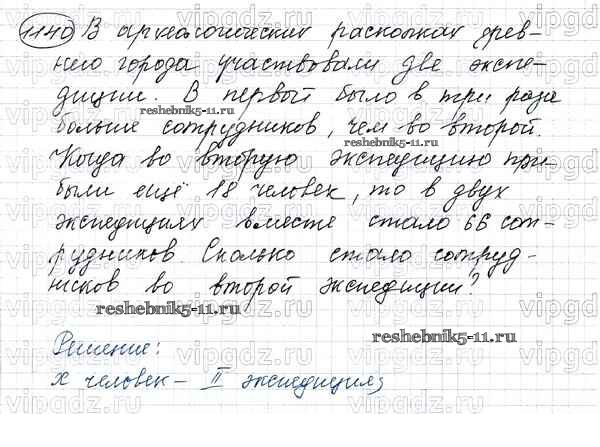 1140 В археологических раскопках древ-
него города участвовали две экспе-
диции. В первой было в три раза
больше сотрудников, чем во второй.
Когда во вторую экспедицию при
были ещё 18 человек, то в двух
экспедициях вместе стало 66 сот-
рудников. Сколько стало сотруд-
ников во второй экспедиции?
Решение:
x человек – II экспедиция;
reshebnik5-11.ru
reshebnik5-11.ru
reshebnik5-11.ru
reshebnik5-11.ru
vipgdz.ru